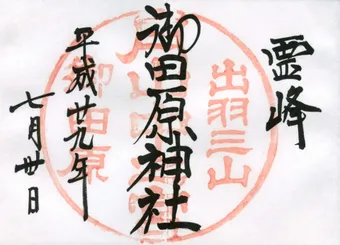 霊峰
出羽三山
御田原神社
御田原
平成廿九年
七月卅日